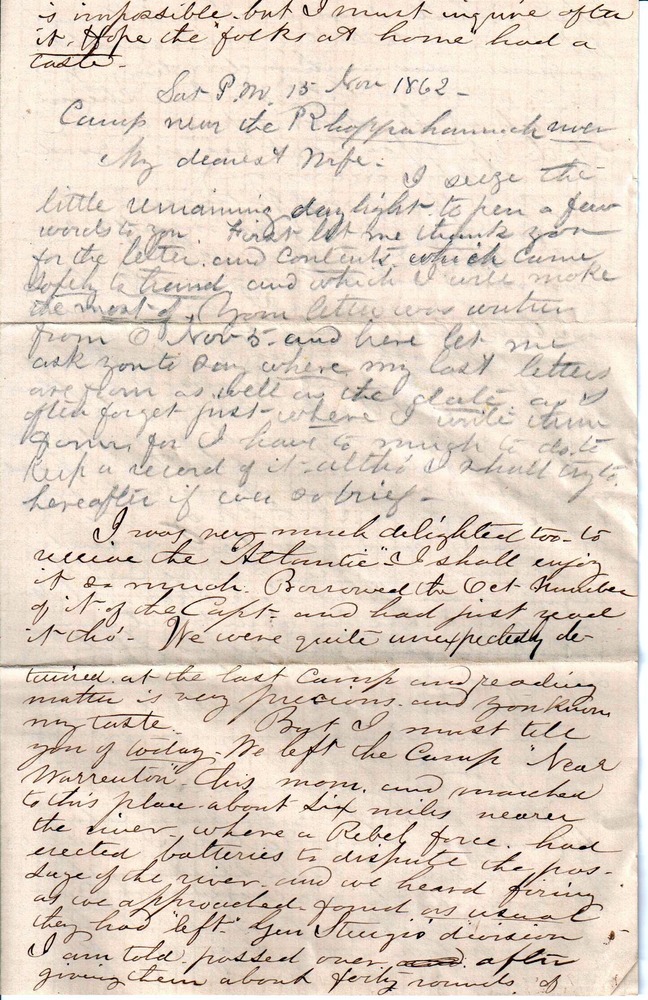 is impossible but I must inquire after
it. Hope the folks at home had a
taste.
Sat P.M. 15 Nov 1862 -
Camp near the Rhappahannock river
My dearest Wife:
I seize the
little remaining daylight to pen a few
words to you. First let me thank you
for the letter and contents which came
safely to hand and which I will make
the most of. Your letter was written
from O Nov 5. and here let me
ask you to say where my last letters
are from as well as the date as I
often forget just where I write them
from, for I have to much to do to
keep a record of it - altho' I shall try to
hereafter if ever so brief -
I was very much delighted too - to
receive the "Atlantic" I shall enjoy
it so much. Borrowed the Oct number
of it of the Capt. and had just read
it tho' - We were quite unexpectedly de-
tained at the last Camp and reading
matter is very precious and you know
my taste. But I must tell
you of today - We left the Camp "Near
Warrenton" this morn. and marched
to this place about six miles nearer
the river - where a Rebel force had
erected batteries to dispute the pas-
sage of the river and we heard firing
as we approached - found as usual
they had "left" Gen Sturgis division
I am told passed over and after
giving them about forty rounds of